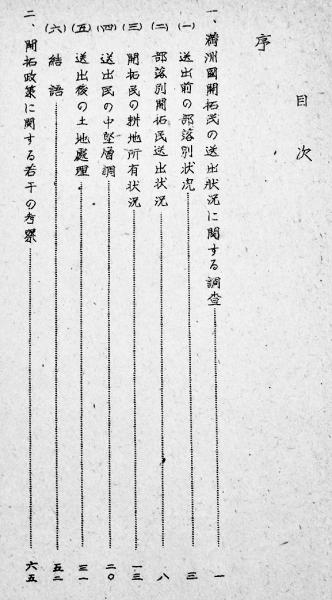 目次
序
一、満洲國開拓民の送出狀況に関する調査 一
(一) 送出前の部落別狀況 三
(二) 部落別開拓民送出狀況 八
(三) 開拓民の耕地所有狀況 一三
(四) 送出民の中堅層調 二〇
(五) 送出後の土地處理 三一
(六) 結語 五二
二、開拓政策に関する若干の考察 六五